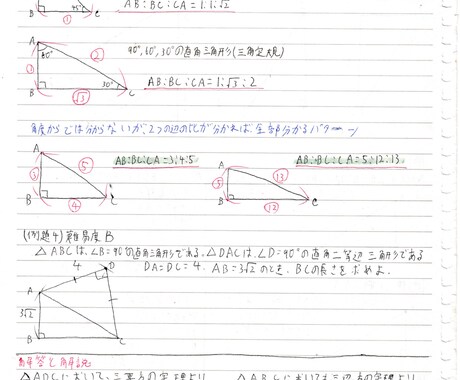 AB:BC:CA=1:1:√2
B ① 45° C
A
60° ②
① 90°,60°,30°の直角三角形(三角定規)
30°
B √3 C AB:BC:CA=1:√3:2
角度からでは分からないが、2つの辺の比が分かれば全部分かるパターン
A ⑤ AB:BC:CA=3:4:5
③
B ④ C
A ⑬ AB:BC:CA=5:12:13
⑤
B ⑫ C
(例題4)難易度B
△ABCは、∠B=90°の直角三角形である。△DACは、∠D=90°の直角二等辺三角形である
DA=DC=4、AB=3√2のとき、BCの長さを求めよ。
D
4
A
3√2
B C
解答と解説
△ADCにおいて、三平方の定理より △ABCにおいても三平方の定理より